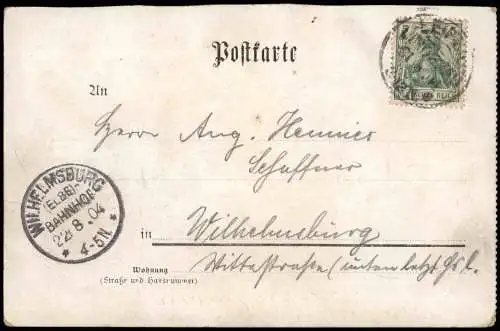 Postkarte
An
Herrn Aug. Hennies
Schaffner
in Wilhelmsburg
Wohnung
(Straße und Hausnummer)
Wittestraße (unten letzt Hs l.
WILHELMSBURG
(ELBE)-
BAHNHOF
22 8 04
* 4-5N *